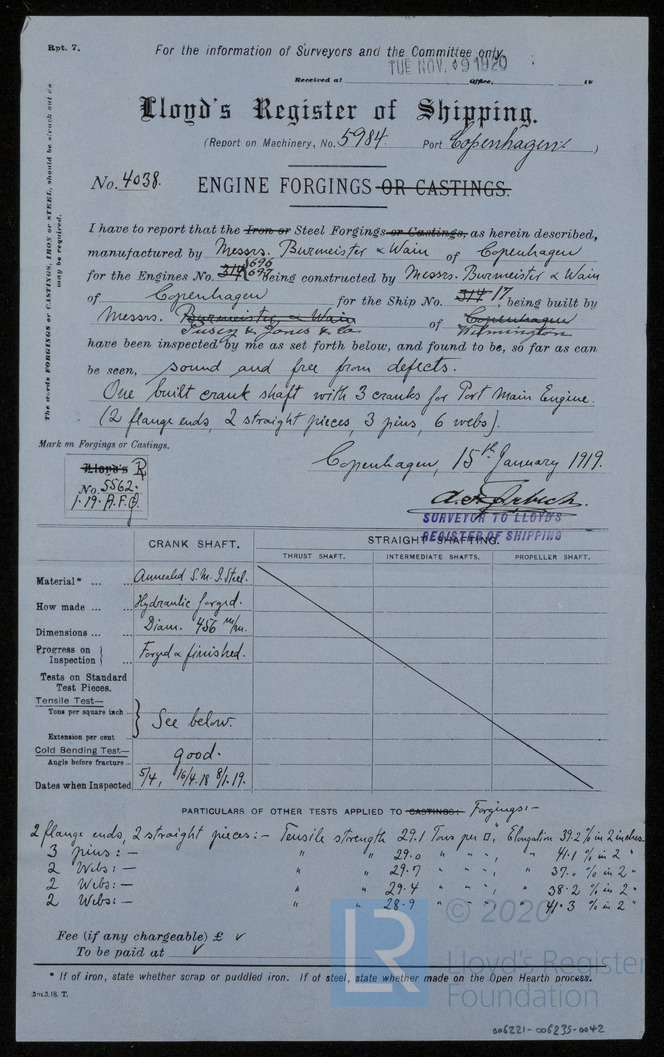 Rpt. 7.
For the information of Surveyors and the Committee only.
TUE NOV. 9 1920
Received at Office, 19
Lloyd's Register of Shipping.
(Report on Machinery, No. 5984. Port Copenhagen. )
No. 4038. ENGINE FORGINGS OR CASTINGS.
The words FORGINGS or CASTINGS, IRON or STEEL, should be struck out as
may be required.
I have to report that the Iron or Steel Forgings or Castings, as herein described,
manufactured by Messrs. Burmeister & Wain of Copenhagen
696
for the Engines No. 314 697 being constructed by Messrs. Burmeister & Wain
of Copenhagen for the Ship No. 314 17, being built by
Messrs. Burmeister & Wain of Copenhagen
Pusey & Jones & Co. Wilmington
have been inspected by me as set forth below, and found to be, so far as can
be seen, sound and free from defects.
One built crank shaft with 3 cranks for Port Main Engine.
(2 flange ends, 2 straight pieces, 3 pins, 6 webs).
Mark on Forgings or Castings.
Copenhagen, 15th January 1919.
Lloyd's R
No. 5562.
1.19. A.F.J.
SURVEYOR TO LLOYD'S
REGISTER OF SHIPPING
CRANK SHAFT. STRAIGHT SHAFTING.
THRUST SHAFT. INTERMEDIATE SHAFTS. PROPELLER SHAFT.
Material* ... ... Annealed S.M.I.Steel.
How made ... ... Hydraulic forged.
Dimensions ... ... Diam. 456 m/m.
Progress on Inspection ... Forged & finished.
Tests on Standard
Test Pieces.
Tensile Test—
Tons per square inch ... See below.
Extension per cent
Cold Bending Test— good.
Angle before fracture ...
Dates when Inspected 5/4, 16/4.18 8/1.19.
PARTICULARS OF OTHER TESTS APPLIED TO CASTINGS:— Forgings:—
2 flange ends, 2 straight pieces:— Tensile strength 29.1 Tons per □", Elongation 39.2 % in 2 inches
3 pins:— " " 29.0 " " ", " 41.1 % in 2 "
2 Webs:— " " 29.7 " " ", " 37.0 % in 2 "
2 Webs:— " " 29.4 " " ", " 38.2 % in 2 "
2 Webs:— " " 28.9 " " ", " 41.3 % in 2 "
Fee (if any chargeable) £ ✓
To be paid at ✓
* If of iron, state whether scrap or puddled iron. If of steel, state whether made on the Open Hearth process.
3m.3.18. T.
LR
© 2020
Lloyd's Register
Foundation
006221-006235-0042